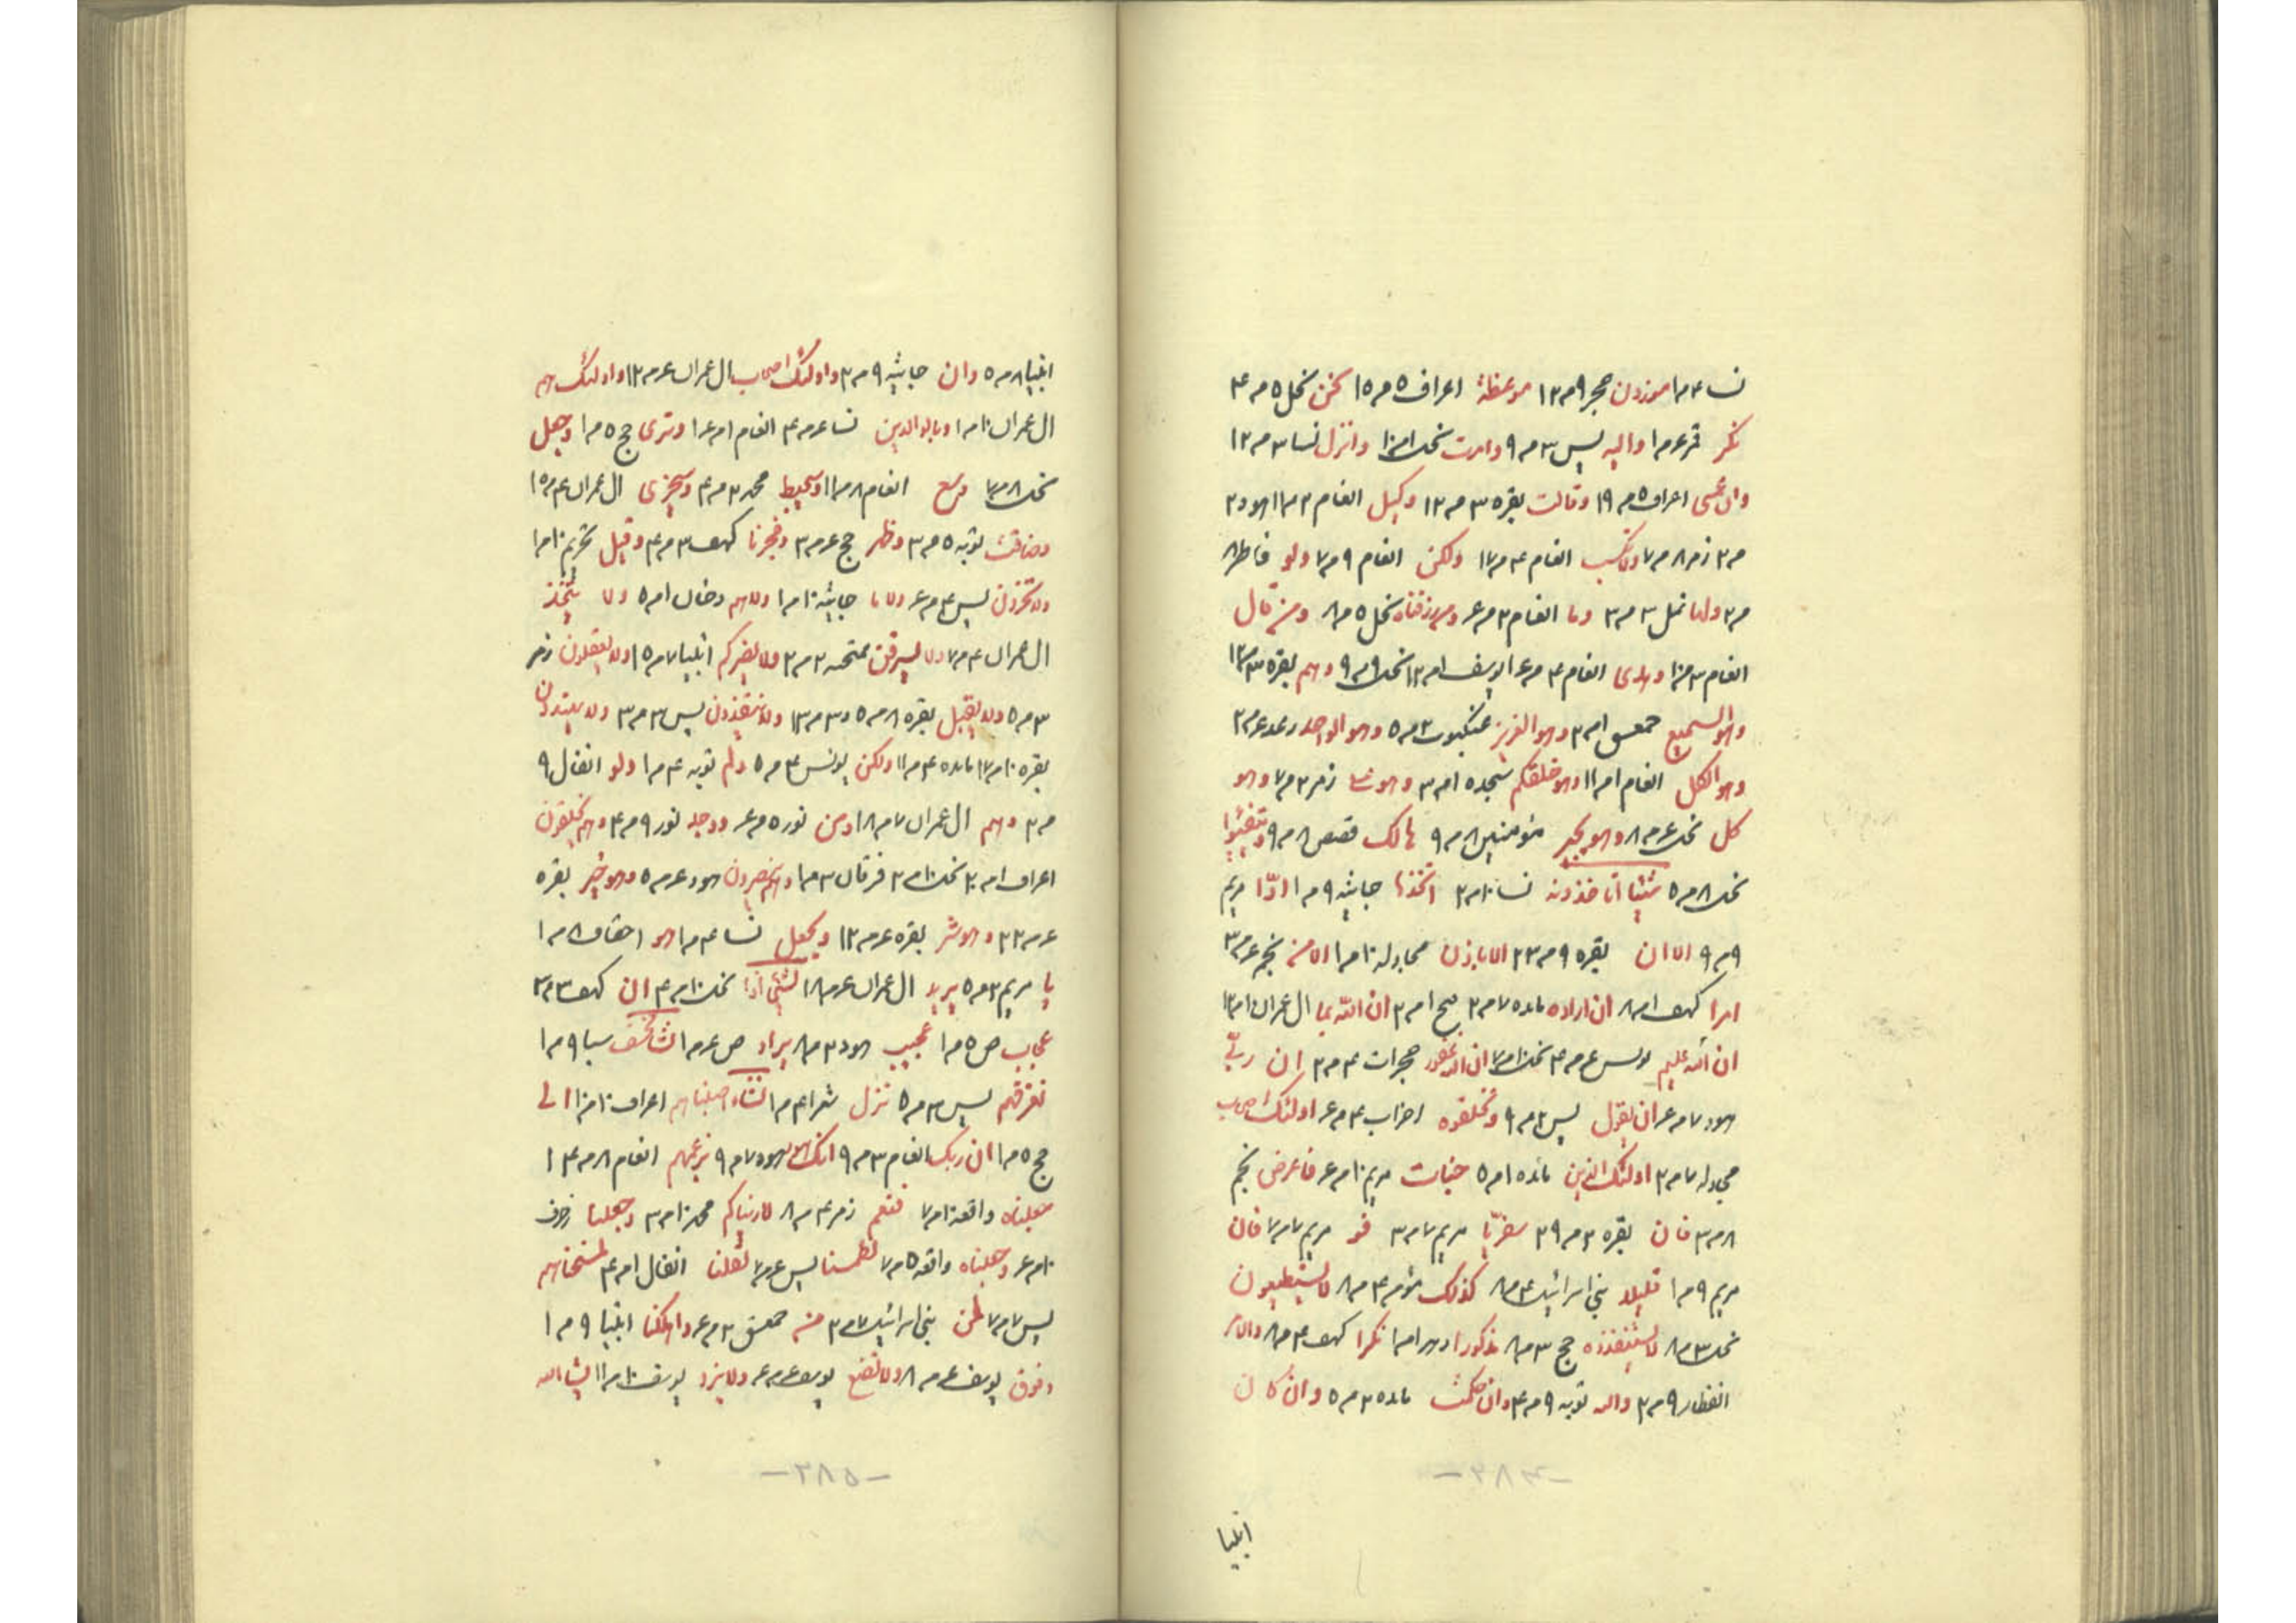 نسا ۴ م۱ موزون حجر ۹ م۱۲ موعظة اعراف ۵ م۱۵ نحن نحل ۵ م۴
نكر قمر ع م۱ واليه يس ۳ م۹ واوت نحل ۱ م۱۰ وانزل نسا ۳ م۱۲
وان عسى اعراف ۵ م۱۹ وقالت بقره ۳ م۱۲ وكيل انعام ۲ م۱۱ هود ۲
م۲ زمر ۸ م۷ ولا تكسب انعام ۴ م۱۷ ولكن انعام ۹ م۷ ولو فاطر ۸
م۲ ولها نمل ۳ م۳ وما انعام ۳ م ع ومن رزقناه نحل ۵ م۸ ومن قال
انعام ۳ م۱۰ وهدى انعام ۴ م ع۱ يوسف ۱ م۱۲ نحل ۹ م۹ وهم بقره ۳ م۱۲
وهو السميع حمعسق ۱ م۲ وهو العزيز عنكبوت ۳ م۵ وهو الواحد رعد ع م۲
وهو الكل انعام ۱ م۱۱ وهو خلقكم سجده ۱ م۳ زمر ۲ م۷ وهو
كل نحل ع م۸ وهو يجير مؤمنين ۸ م۹ هالك قصص ۸ م۹
نحل ۸ م۵ شيئا اتأخذونه نسا ۱۰ م۲ اتخذها جاثيه ۹ م۱ ادّا مريم
۹ م۹ الا ان بقره ۹ م۲۳ الا باذن مجادله ۱۰ م۱ الا من نجم ع م۳
امرا كهف ۱ م۸ ان اراد مائده ۷ م۲ فتح ۱ م۲ ان الله بما ال عمران ۱ م۱۲
ان الله عليم يونس ع م۴ نحل ۱۰ م۷ غفور حجرات ۴ م۲ ان ربّي
هود ۷ م ع ان يقول يس ۲ م۹ احزاب ۴ م ع اولئك اصحاب
مجادله ۷ م۲ اولئك الذين مائده ۱ م۵ جنات مريم ۱۰ م ع فاعرض نجم
۸ م۳ فان بقره ۲ م۲۹ سفريّا مريم ۷ م۳ فو مريم ۷ م۷ فان
مريم ۹ م۱ قليلا بني اسرائيل ۴ م۸ كذلك مؤمن ۴ م۸ لا يستطيعون
نحل ۳ م۸ لا يستنقذوه حج ۳ م۸ مذكورا دهر ۱ م۱ نكرا كهف ۴ م۸ والامر
انفطار ۹ م۲ والله توبه ۹ م۴ وان حكمت مائده ۲ م۵ وان كان
-۲۸۴-
انبيا
انبيا ۸ م۵ وان جاثيه ۹ م۲ واولئك اصحاب ال عمران ع م۱۲ واولئك هم
ال عمران ۱۰ م۱ وبالوالدين نسا ع م۴ انعام ۱ م ع۱ وترى حج ۵ م۱ وجعل
نحل ۸ م۷ وسع انعام ۸ م۱۱ وسيحبط محمد ۲ م۴ وسيجزى ال عمران ۴ م۱۵
وضاقت توبه ۵ م۳ وطهر حج ع م۳ وفجرنا كهف ۳ م۴ وقيل تحريم ۱۰ م۱
ولا تجزون يس ۴ م ع ولا ما جاثيه ۱۰ م۱ ولا هم دخان ۱ م۵ ولا يتخذ
ال عمران ۴ م۷ ولا يسرقن ممتحنه ۲ م۲ ولا يضركم انبيا ۷ م۱۵ ولا يعقلون زمر
۳ م۵ ولا يقبل بقره ۸ م۵ و۳ م۱۲ ولا ينقذون يس ۳ م۳ ولا يهتدون
بقره ۱۰ م۱۷ مائده ۴ م۱۱ ولكن يونس ۴ م۵ ولم توبه ۴ م۱ ولو انفال ۹
م۲ وهم ال عمران ۷ م۱۸ ومن نور ۵ م ع ووجد نور ۹ م۴ وهم يخلقون
اعراف ۱ م۲۰ نحل ۱۰ م۲ فرقان ۳ م۱ هود ع م۵ وهو خير بقره
ع م۲۲ وهو شر بقره ع م۱۲ ويجعل نسا ۴ م۱ هو احقاف ۸ م۱
يا مريم ۳ م۵ يريد ال عمران ع م۱۸ لشئ اذا نحل ۱۰ م۴ ان كهف ۳ م۳
عجاب ص ۵ م۱ عجيب هود ۳ م۸ يراد ص ع م۱ نشأ نخسف سبا ۹ م۱
نغرقهم يس ۳ م۵ ننزل شعرا ۴ م۱ نشاء اصبناهم اعراف ۱۰ م۱۰ الى
حج ۵ م۱ ان ربك انعام ۳ م۹ انك هود ۷ م۹ بزعمهم انعام ۸ م۱۴
جعلناه واقعه ۱۰ م۷ فنعم زمر ۴ م۸ لاريناكم محمد ۱۰ م۳ وجعلنا زخرف
۱۰ م ع وجعلناه واقعه ۵ م۷ لطمسنا يس ع م۷ لقلنا انفال ۱ م۴ لمسخناهم
يس ۷ م۷ لمن بني اسرائيل ۷ م۲ منه حمعسق ۳ م ع واهلكنا انبيا ۹ م۱
وفوق يوسف ع م۸ ولا نضيع يوسف ع م ع ولا يرد يوسف ۱۰ م۱۱ يشاء الله
-۲۸۵-